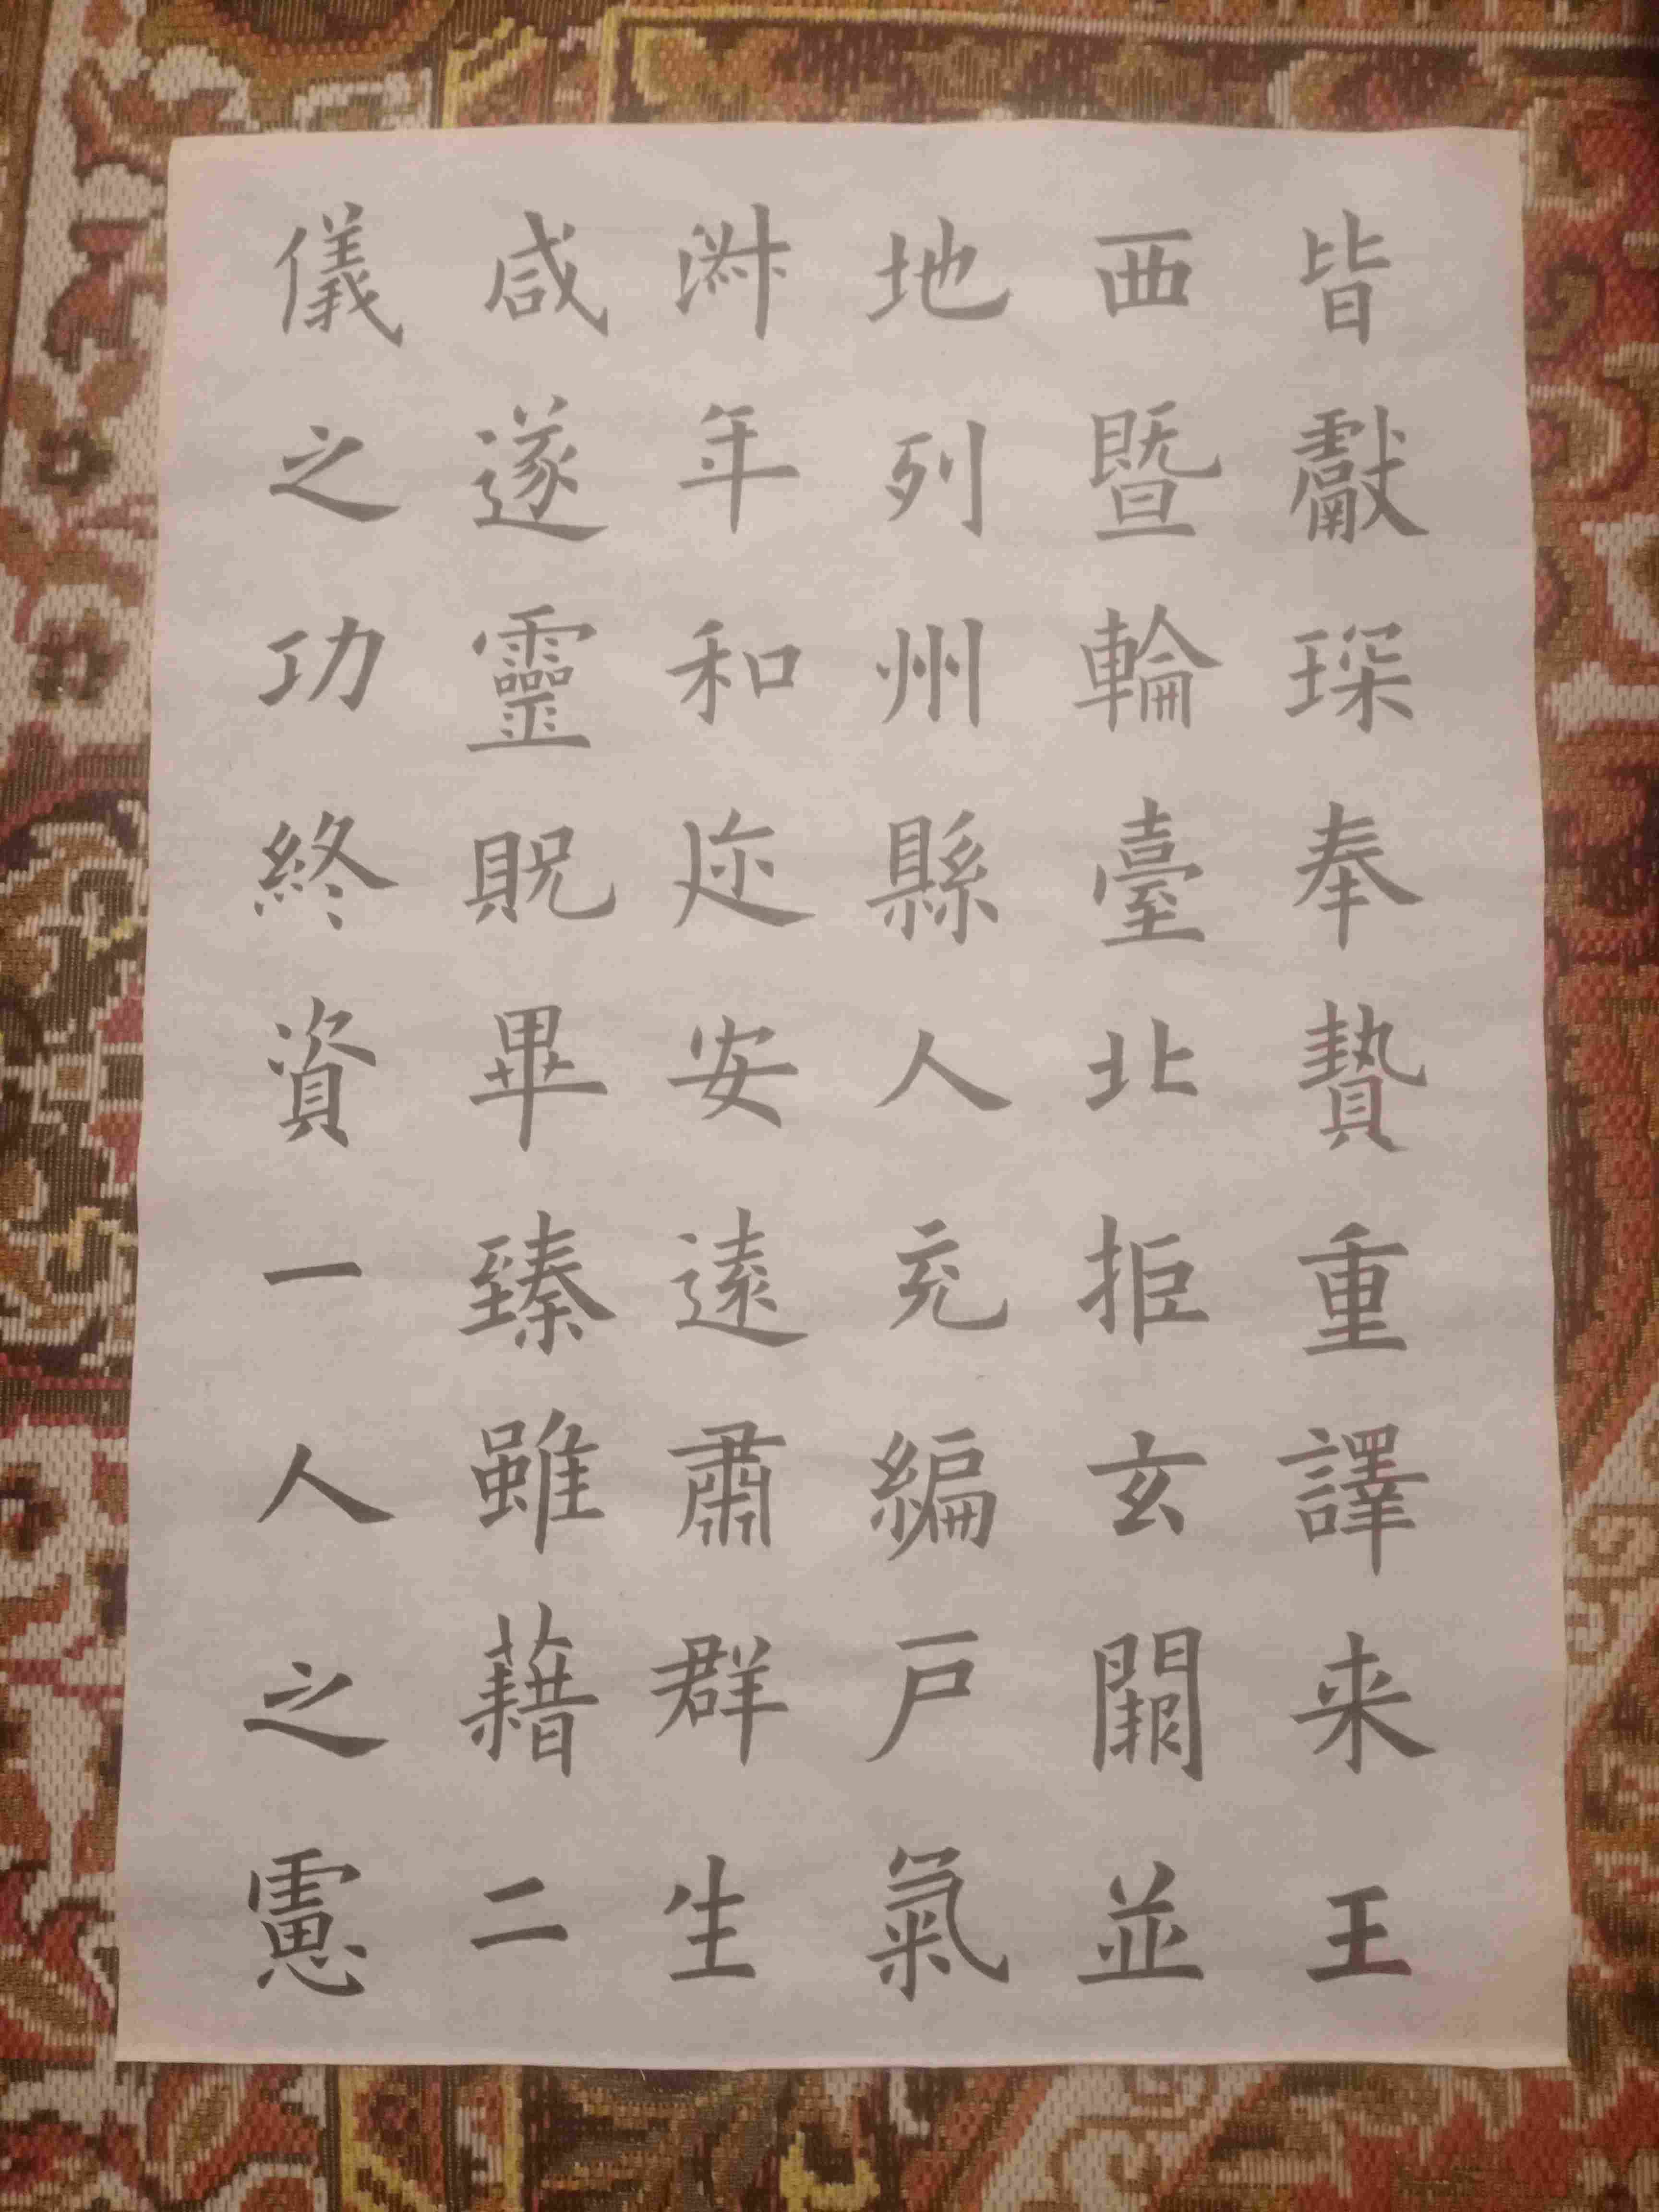 皆獻琛奉贄重譯来王
西暨輪臺北拒玄闕並
地列州縣人充編戸氣
淑年和迩安遠肅群生
咸遂靈貺畢臻雖藉二
儀之功終資一人之慮